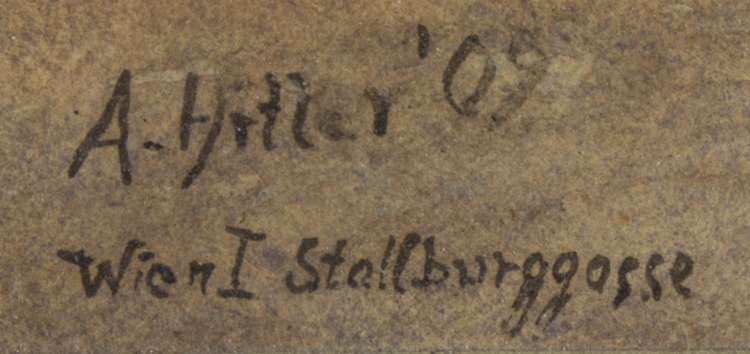 A. Hitler '09
Wien I Stallburggasse